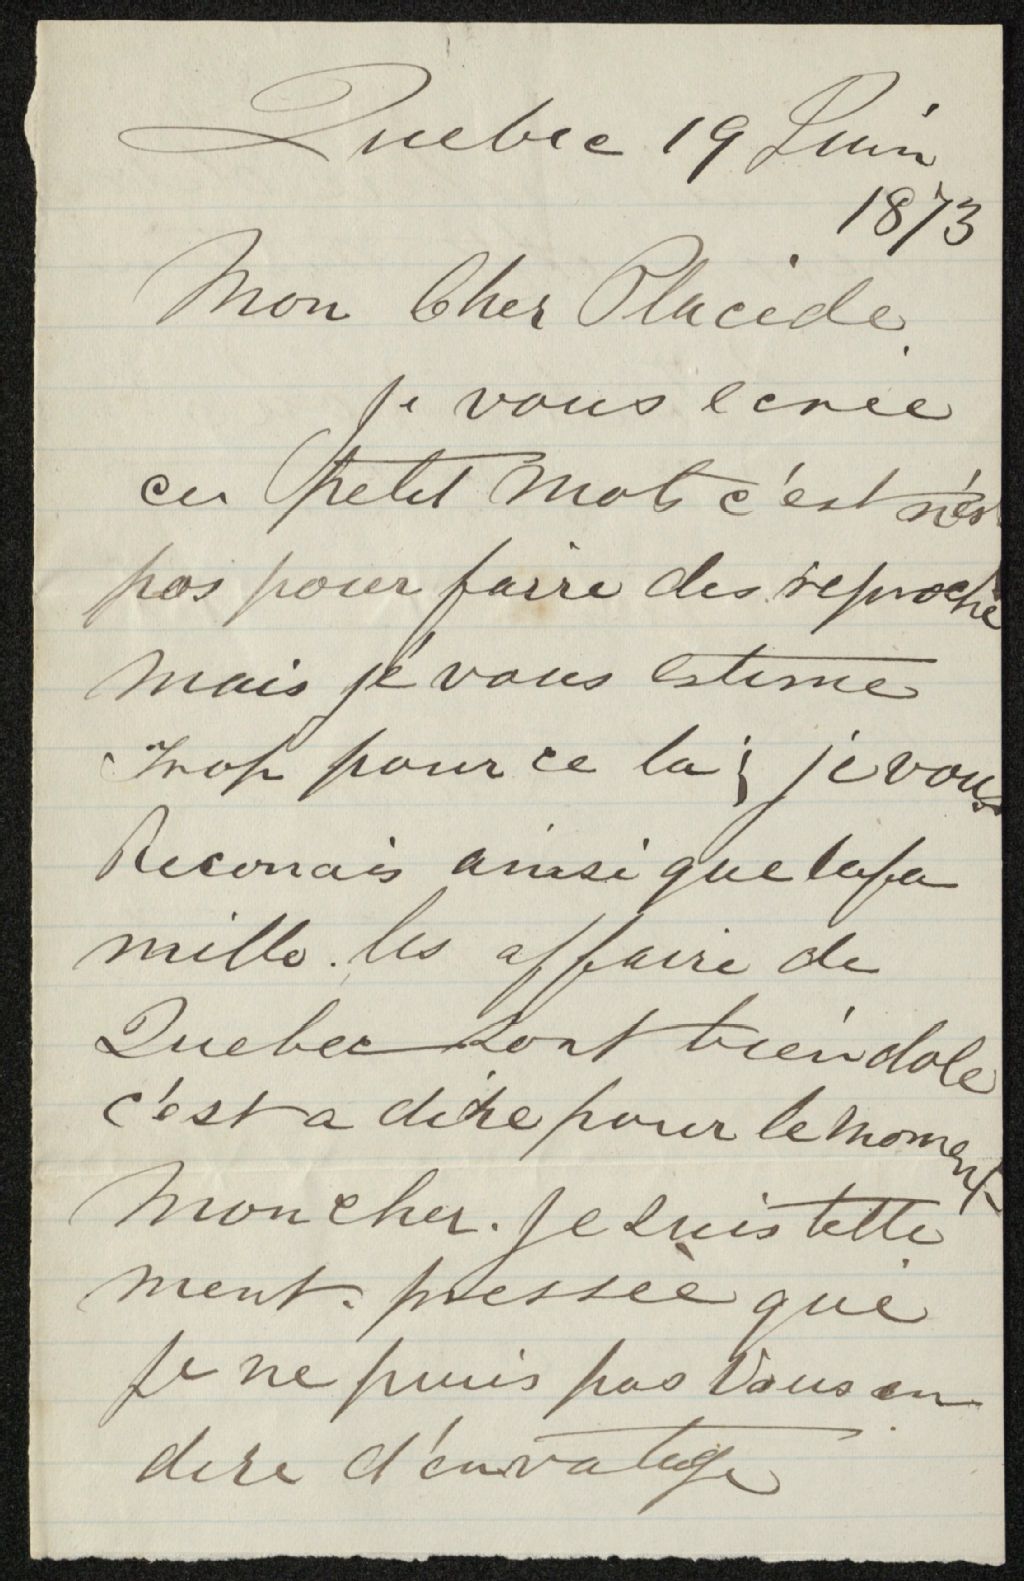 Quebec 19 Juin
1873
Mon Cher Placide
je vous ecrie
ce Petit Mot c'est n'est
pas pour faire des reproche
Mais je vous estime
trop pour ce la ; je vous
Reconais ainsi que la fa
mille. les affaire de
Quebec sont bien dole
c'est a dire pour le moment
Mon cher. Je suis telle
ment. pressée que
je ne puis pas Vous en
dire d'envatage